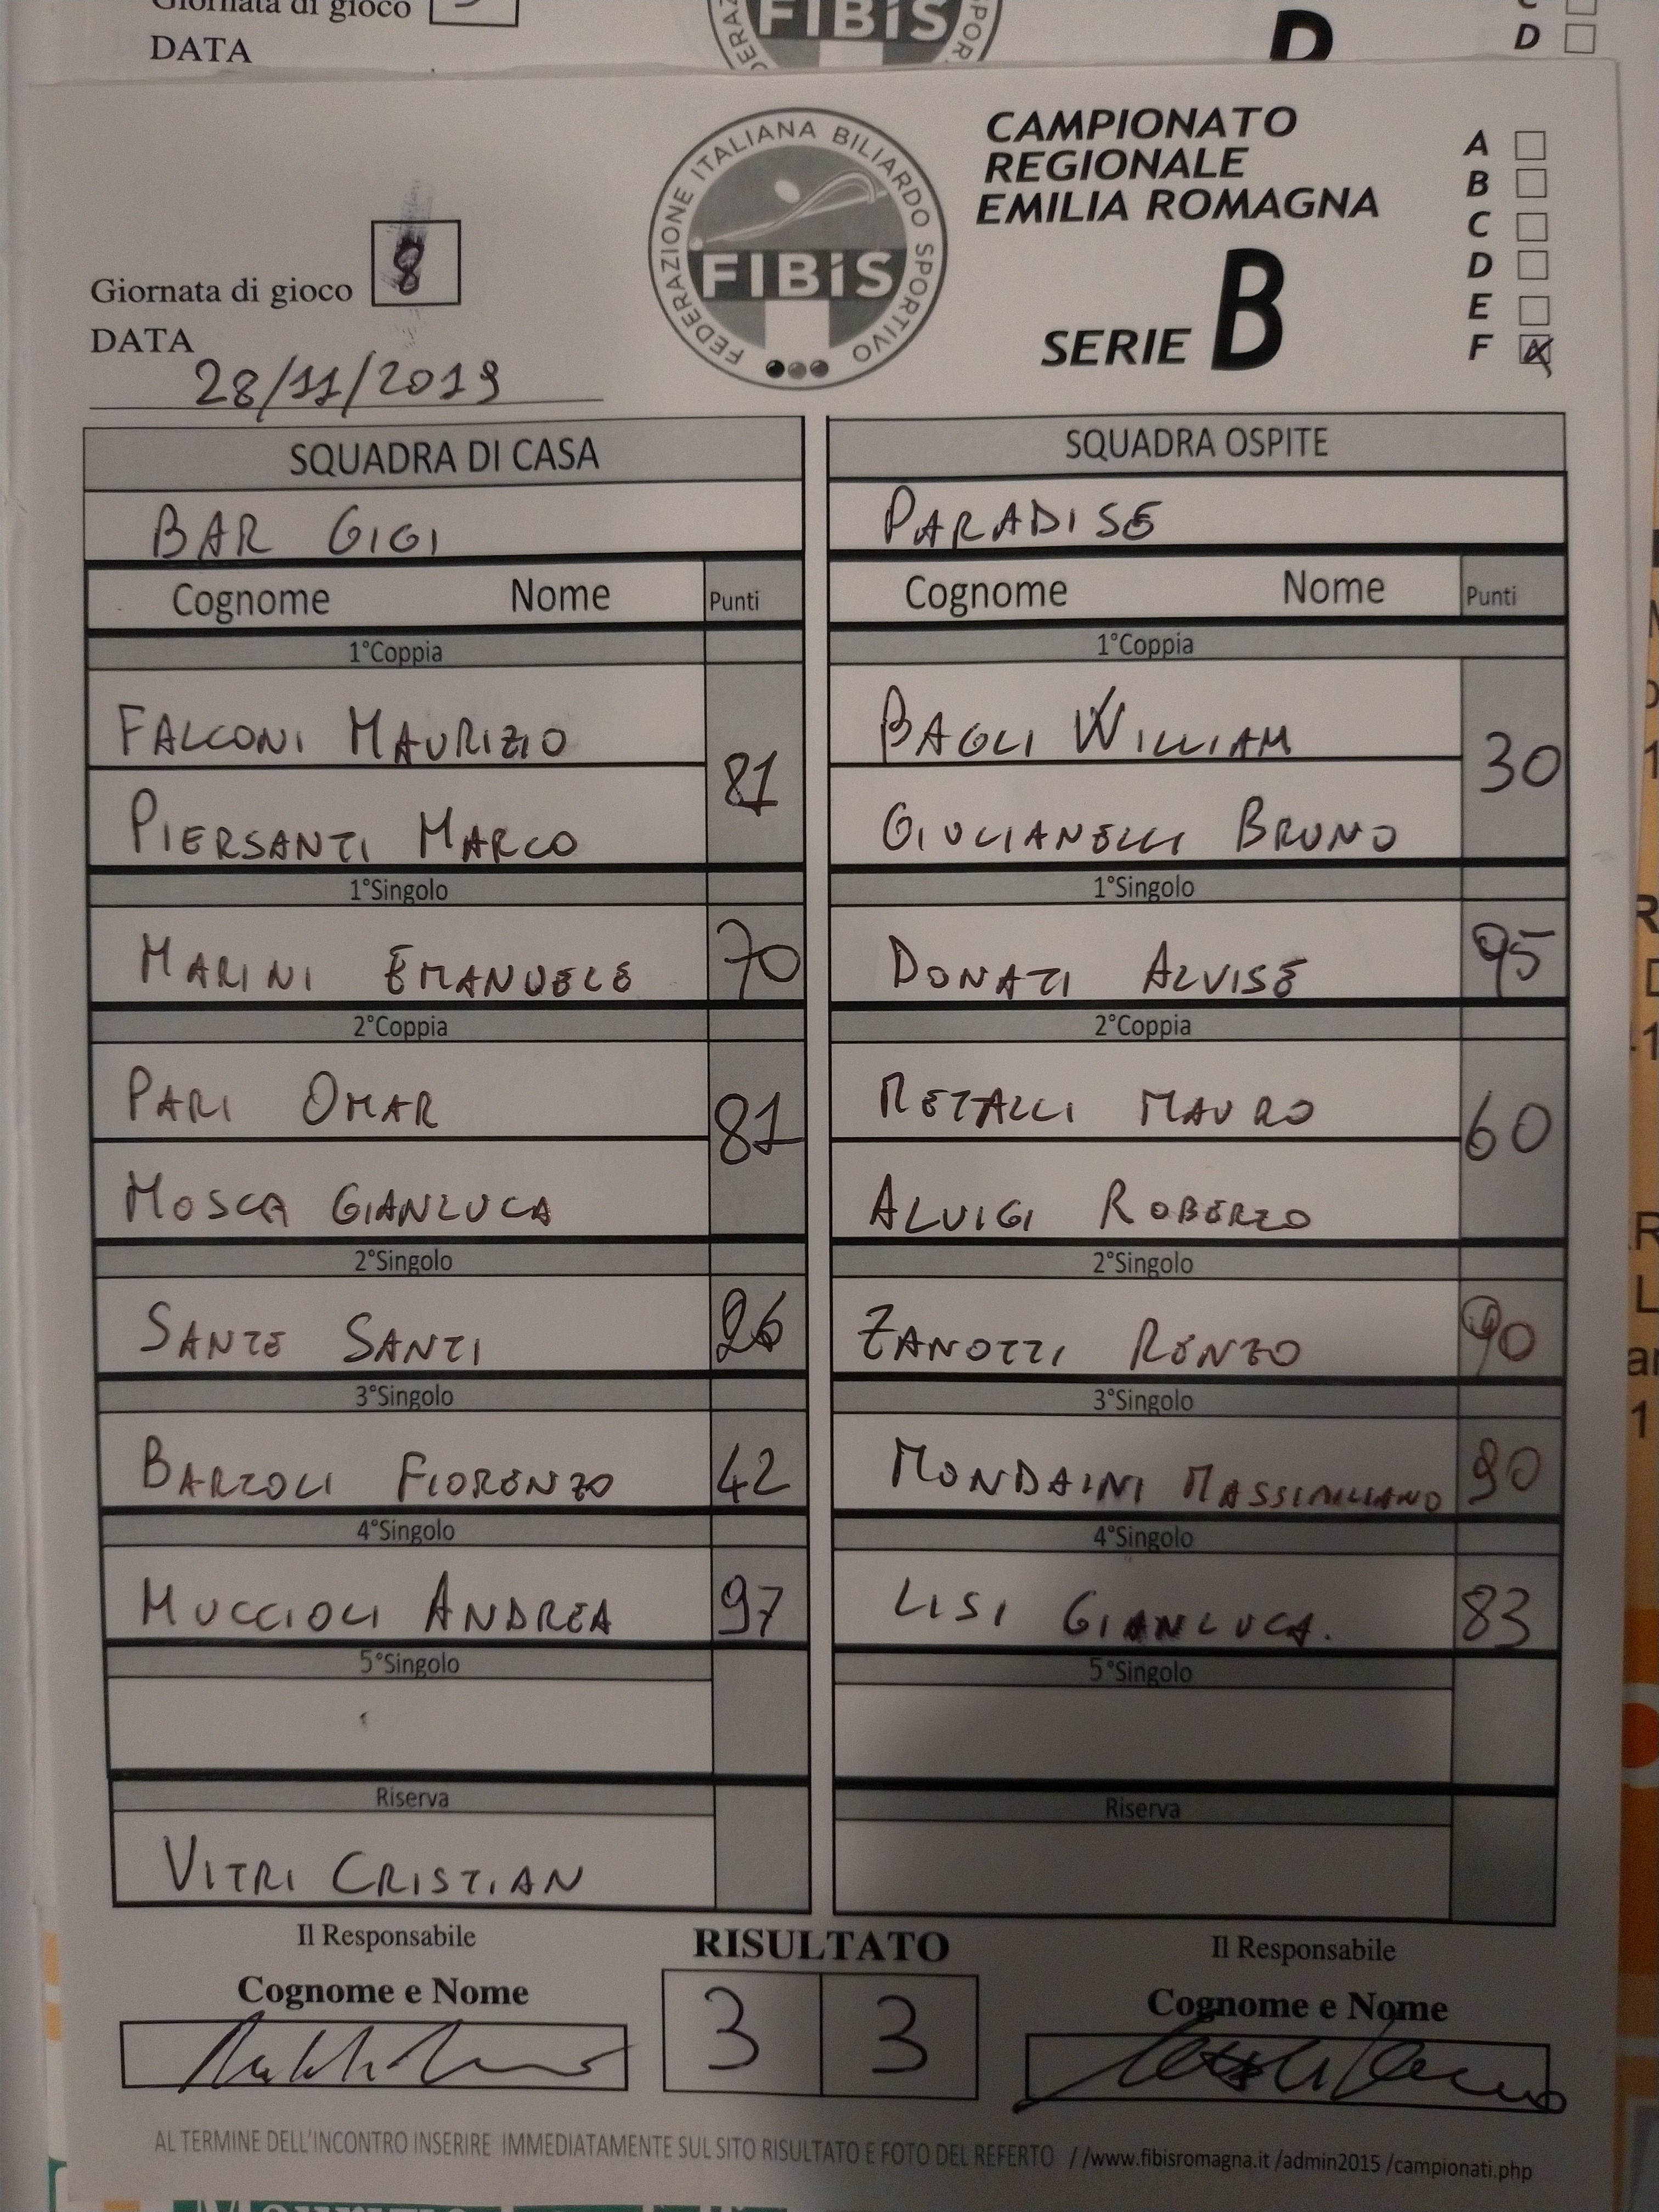 Giornata di gioco
DATA
FIBiS
D
D
CAMPIONATO
REGIONALE
EMILIA ROMAGNA
SERIE B
A
B
C
D
E
F
FEDERAZIONE ITALIANA BILIARDO SPORTIVO
FIBiS
Giornata di gioco 8
DATA
28/11/2019
SQUADRA DI CASA
SQUADRA OSPITE
BAR GIGI
PARADISE
Cognome Nome Punti
Cognome Nome Punti
1°Coppia
1°Coppia
FALCONI MAURIZIO
BAGLI WILLIAM
81
30
PIERSANTI MARCO
GIULIANELLI BRUNO
1°Singolo
1°Singolo
MARINI EMANUELE 70
DONATI ALVISE 95
2°Coppia
2°Coppia
PARI OMAR
METALLI MAURO
81
60
MOSCA GIANLUCA
ALUIGI ROBERTO
2°Singolo
2°Singolo
SANTE SANTI 26
ZANOTTI RENZO 90
3°Singolo
3°Singolo
BARTOLI FIORENZO 42
MONDAINI MASSIMILIANO 90
4°Singolo
4°Singolo
MUCCIOLI ANDREA 97
LISI GIANLUCA. 83
5°Singolo
5°Singolo
Riserva
Riserva
VITRI CRISTIAN
Il Responsabile
RISULTATO
Il Responsabile
Cognome e Nome
3 3
Cognome e Nome
AL TERMINE DELL'INCONTRO INSERIRE IMMEDIATAMENTE SUL SITO RISULTATO E FOTO DEL REFERTO //www.fibisromagna.it /admin2015 /campionati.php